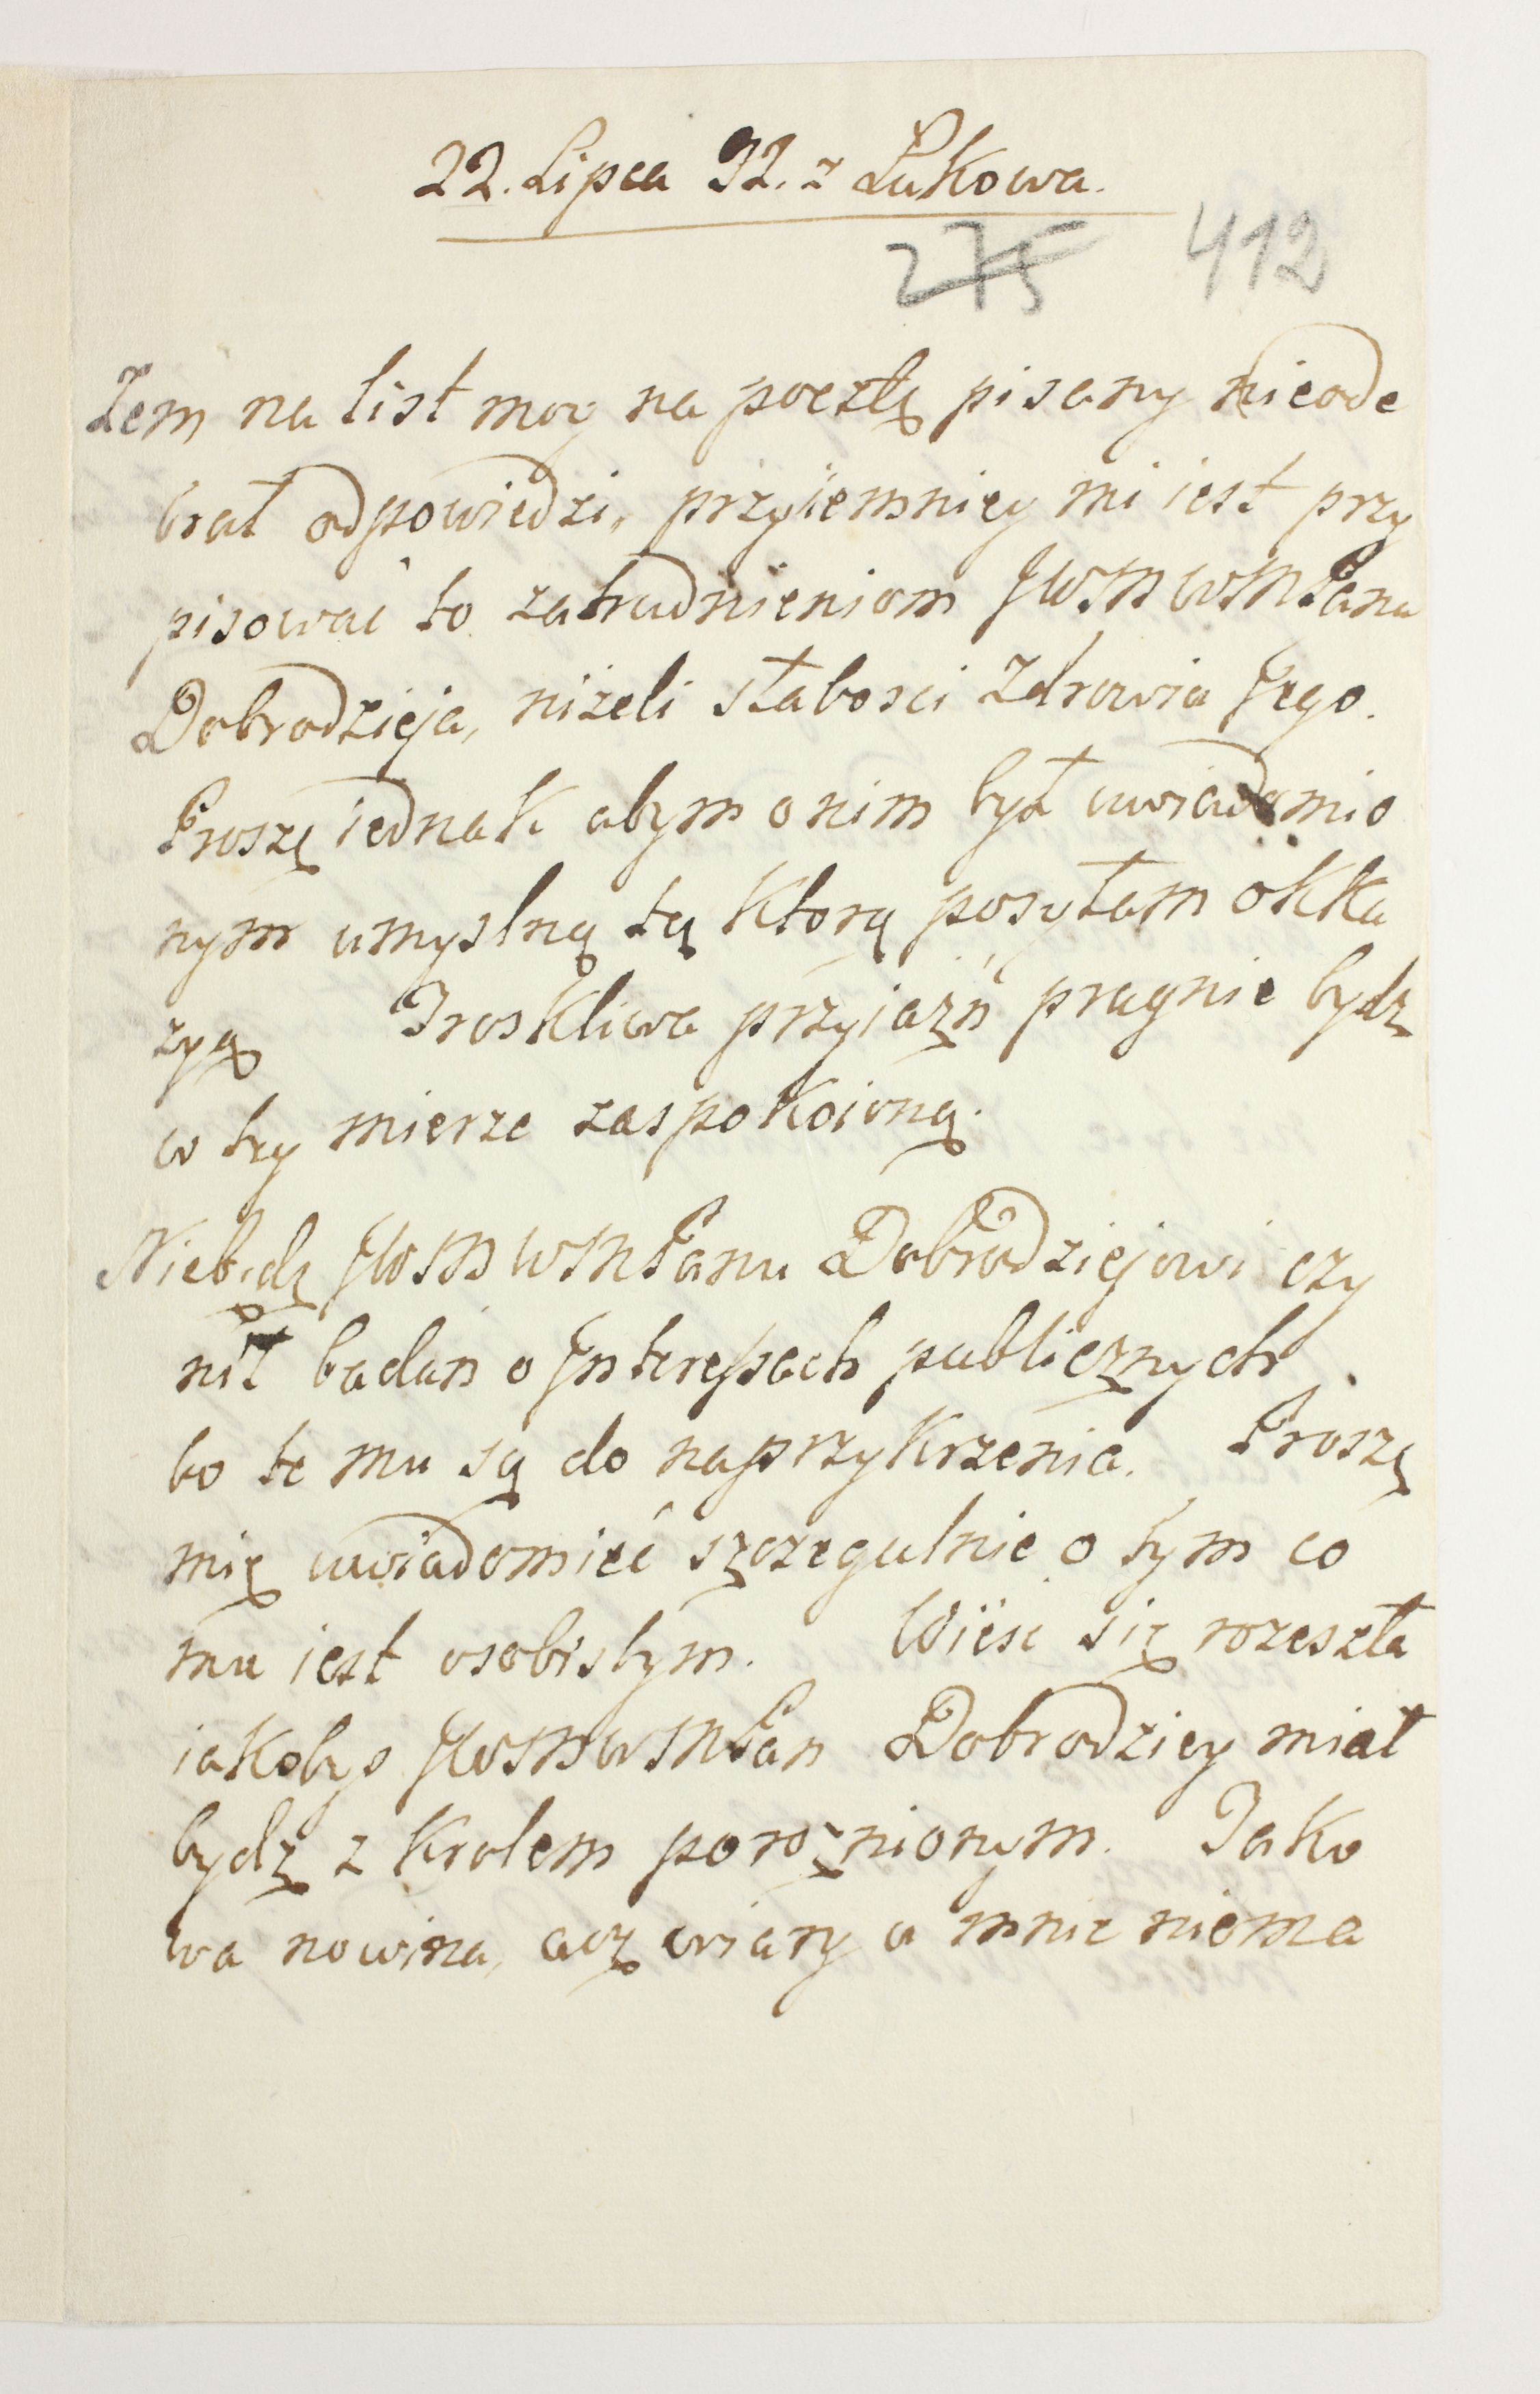 22. Lipca 92. z Łukowa.
275 412
Żem na list moy na pocztę pisany nieode
brał odpowiedzi, przyiemniey mi iest przy
pisować to zatrudnieniom JWSM WMPana
Dobrodzieja, niżeli słabosci Zdrowia Jego.
Proszę iednak abym o nim był uwiadomio
nym umyslną tą Ktorą posyłam okka
zyą Troskliwa przyjaźń pragnie bydz
w tey mierze zaspokoioną.
Niebędę JWSM WMPanu Dobrodziejowi czy
nił badan o Interessach publicznych
bo te mu są do naprzykrzenia. Proszę
mię uwiadomieć szczegulnie o tym co
mu iest osobistym. Wieść się rozeszła
iakoby JWSM WMPan Dobrodziey miał
bydz z Krolem porożnionym. Jako
wa nowina, acz wiary u mnie niema